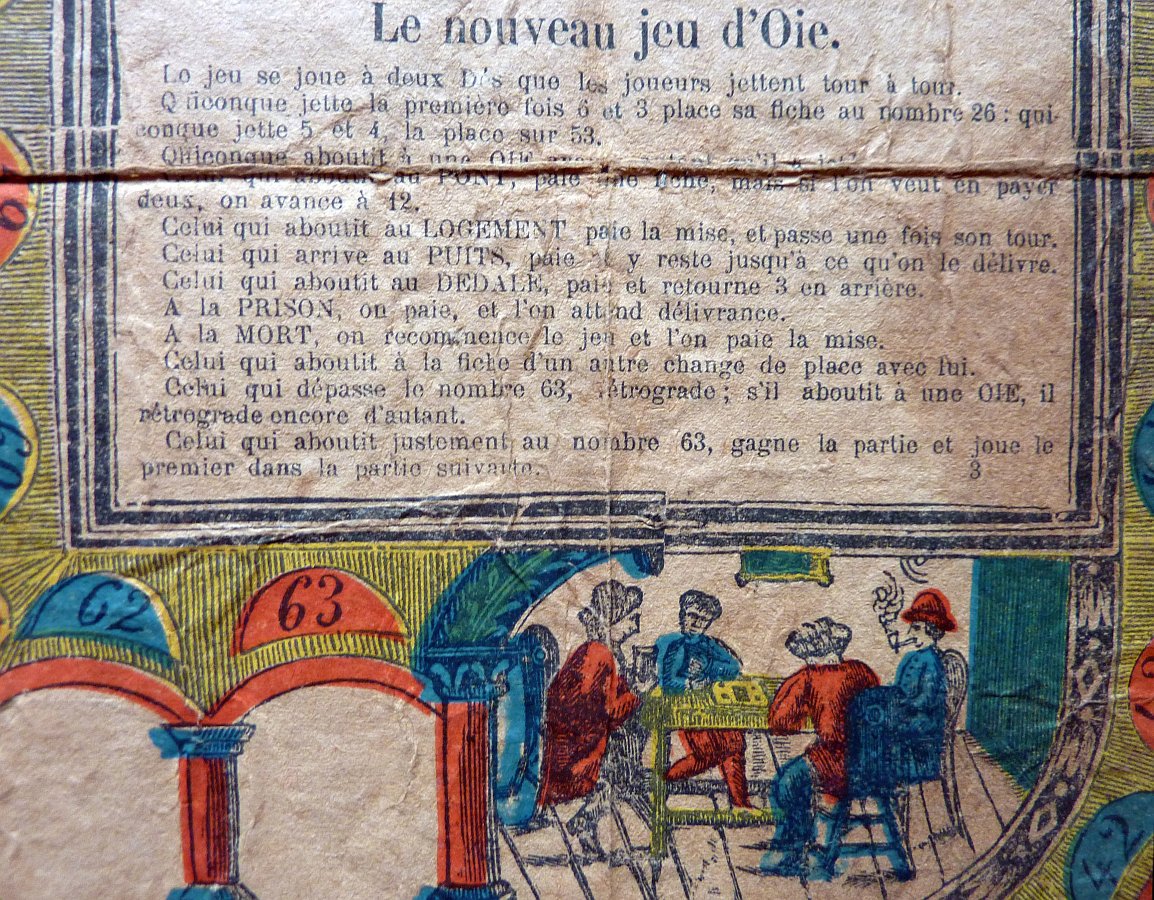 Le nouveau jeu d'Oie.
Le jeu se joue à deux Dés que les joueurs jettent tour à tour.
Quiconque jette la première fois 6 et 3 place sa fiche au nombre 26 : qui-
conque jette 5 et 4, la place sur 53.
Quiconque aboutit à une OIE
qui aboutit au PONT, paie une fiche, mais si l'on veut en payer
deux, on avance à 12.
Celui qui aboutit au LOGEMENT paie la mise, et passe une fois son tour.
Celui qui arrive au PUITS, paie et y reste jusqu'à ce qu'on le délivre.
Celui qui aboutit au DEDALE, paie et retourne 3 en arrière.
A la PRISON, on paie, et l'on attend délivrance.
A la MORT, on recommence le jeu et l'on paie la mise.
Celui qui aboutit à la fiche d'un autre change de place avec lui.
Celui qui dépasse le nombre 63, rétrograde ; s'il aboutit à une OIE, il
rétrograde encore d'autant.
Celui qui aboutit justement au nombre 63, gagne la partie et joue le
premier dans la partie suivante.
3
9
60
62
63
42